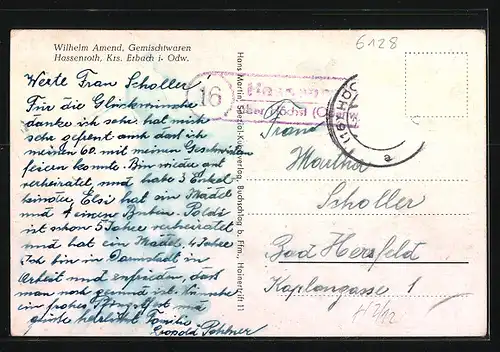 6128
Wilhelm Amend, Gemischtwaren
Hassenroth, Krs. Erbach i. Odw.
Werte Frau Scholler!
Für die Glückwünsche
danke ich sehr. hat mich
sehr gefreut auch daß ich
meinen 60. mit meinen Geschwistern
feiern konnte. Bin wieder
verheiratet, und habe 3 Enkel-
kinder, Elsi hat ein Mädel
und einen Buben. Poldi
ist schon 5 Jahre verheiratet
und hat ein Mädel, 4 Jahre
Ich bin in Darmstadt in
Arbeit und zufrieden, das
man noch gesund ist.
ein frohes
grüßt herzlichst Familie
Leopold
Hans Martin Spezial-Kugelverlag, Buchschlag b. Ffm., Hainertrift 11
16
Hassenroth
über Höchst
(16) HÖCHST
a
Frau
Martha
Scholler
Bad Hersfeld
Kaplangasse 1